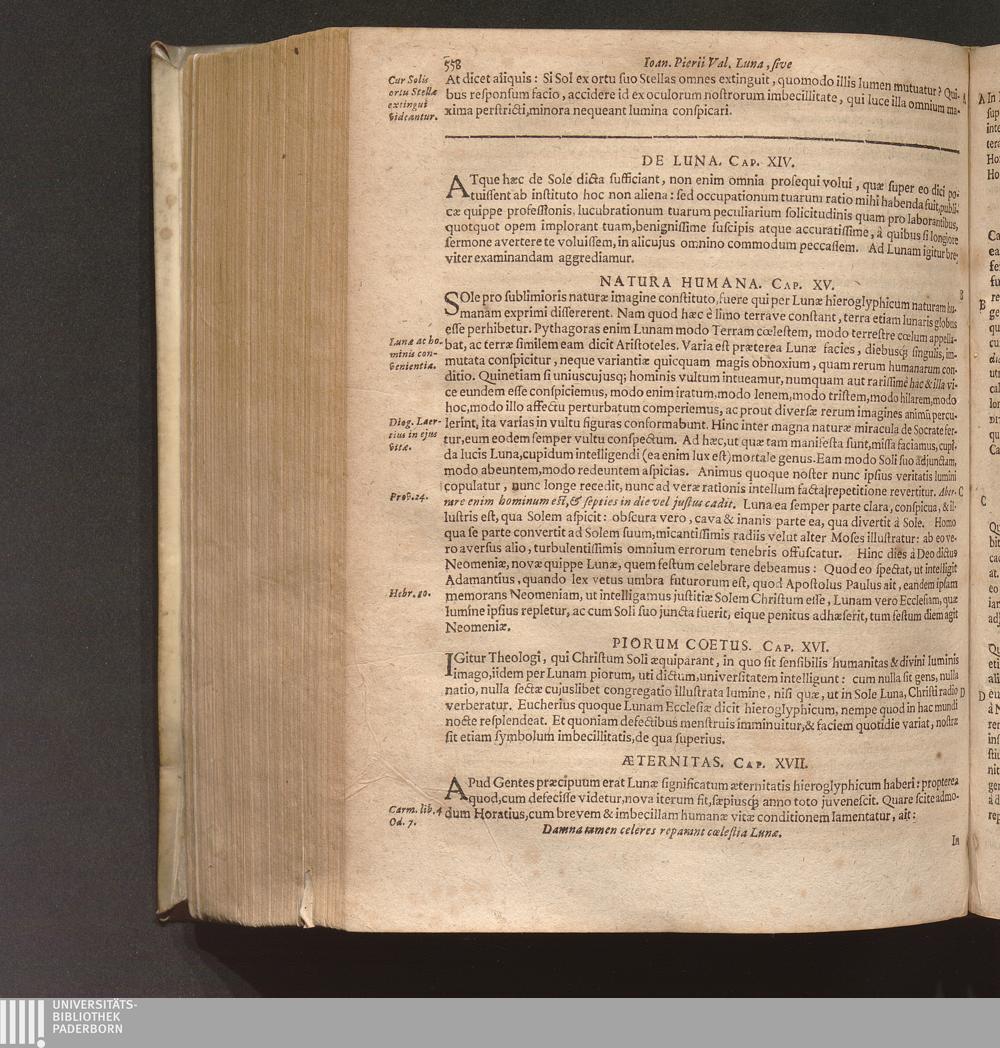 558
Ioan. Pierii Val. Luna, ſive
Cur Solis
ortu Stellæ
extingui
videantur.
At dicet aliquis: Si Sol ex ortu ſuo Stellas omnes extinguit, quomodo illis lumen mutuatur? Qui-
bus reſponſum facio, accidere id ex oculorum noſtrorum imbecillitate, qui luce illa omnium ma-
xima perſtricti, minora nequeant lumina conſpicari.
DE LUNA. CAP. XIV.
ATque hæc de Sole dicta ſufficiant, non enim omnia proſequi volui, quæ ſuper eo dici po-
tuiſſent ab inſtituto hoc non aliena: ſed occupationum tuarum ratio mihi habenda fuit, publi-
cæ quippe profeſſionis, lucubrationum tuarum peculiarium ſolicitudinis quam pro laborantibus,
quotquot opem implorant tuam, benigniſſime ſuſcipis atque accuratiſſime, à quibus ſi longiore
ſermone avertere te voluiſſem, in alicujus omnino commodum peccaſſem. Ad Lunam igitur bre-
viter examinandam aggrediamur.
NATURA HUMANA. CAP. XV.
SOle pro ſublimioris naturæ imagine conſtituto, fuere qui per Lunæ hieroglyphicum naturam hu-
manam exprimi diſſererent. Nam quod hæc è limo terrave conſtant, terra etiam lunaris globus
eſſe perhibetur. Pythagoras enim Lunam modo Terram cœleſtem, modo terreſtre cœlum appella-
Lunæ ac ho-
minis con-
venientia.
bat, ac terræ ſimilem eam dicit Ariſtoteles. Varia eſt præterea Lunæ facies, diebusq; ſingulis, im-
mutata conſpicitur, neque variantiæ quicquam magis obnoxium, quam rerum humanarum con-
ditio. Quinetiam ſi uniuscujusq; hominis vultum intueamur, numquam aut rariſſimè hac & illa vi-
ce eundem eſſe conſpiciemus, modo enim iratum, modo lenem, modo triſtem, modo hilarem, modo
hoc, modo illo affectu perturbatum comperiemus, ac prout diverſæ rerum imagines animū percu-
Diog. Laer-
tius in ejus
vita.
lerint, ita varias in vultu figuras conformabunt. Hinc inter magna naturæ miracula de Socrate fer-
tur, eum eodem ſemper vultu conſpectum. Ad hæc, ut quæ tam manifeſta ſunt, miſſa faciamus, cupi-
da lucis Luna, cupidum intelligendi (ea enim lux eſt) mortale genus. Eam modo Soli ſuo adjunctam,
modo abeuntem, modo redeuntem aſpicias. Animus quoque noſter nunc ipſius veritatis lumini
copulatur, nunc longe recedit, nunc ad veræ rationis intellum facta repetitione revertitur. Aber-
Prov. 24.
rare enim hominum eſt, & ſepties in die vel juſtus cadit. Luna ea ſemper parte clara, conſpicua, & il-
luſtris eſt, qua Solem aſpicit: obſcura vero, cava & inanis parte ea, qua divertit à Sole. Homo
qua ſe parte convertit ad Solem ſuum, micantiſſimis radiis velut alter Moſes illuſtratur: ab eo ve-
ro averſus alio, turbulentiſſimis omnium errorum tenebris offuſcatur. Hinc dies à Deo dictus
Neomeniæ, novæ quippe Lunæ, quem feſtum celebrare debeamus: Quod eo ſpectat, ut intelligit
Adamantius, quando lex vetus umbra futurorum eſt, quod Apoſtolus Paulus ait, eandem ipſam
Hebr. 10.
memorans Neomeniam, ut intelligamus juſtitiæ Solem Chriſtum eſſe, Lunam vero Eccleſiam, quæ
lumine ipſius repletur, ac cum Soli ſuo juncta fuerit, eique penitus adhæſerit, tum feſtum diem agit
Neomeniæ.
PIORUM COETUS. CAP. XVI.
IGitur Theologi, qui Chriſtum Soli æquiparant, in quo ſit ſenſibilis humanitas & divini luminis
imago, iidem per Lunam piorum, uti dictum, univerſitatem intelligunt: cum nulla ſit gens, nulla
natio, nulla ſectæ cujuslibet congregatio illuſtrata lumine, niſi quæ, ut in Sole Luna, Chriſti radio
verberatur. Eucherius quoque Lunam Eccleſiæ dicit hieroglyphicum, nempe quod in hac mundi
nocte reſplendeat. Et quoniam defectibus menſtruis imminuitur, & faciem quotidie variat, noſtræ
ſit etiam ſymbolum imbecillitatis, de qua ſuperius.
ÆTERNITAS. CAP. XVII.
APud Gentes præcipuum erat Lunæ ſignificatum æternitatis hieroglyphicum haberi: propterea
quod, cum defeciſſe videtur, nova iterum ſit, ſæpiusq; anno toto juveneſcit. Quare ſcite admo-
Carm. lib. 4
Od. 7.
dum Horatius, cum brevem & imbecillam humanæ vitæ conditionem lamentatur, ait:
Damna tamen celeres reparant cœleſtia Lunæ.
In
UNIVERSITÄTS-
BIBLIOTHEK
PADERBORN